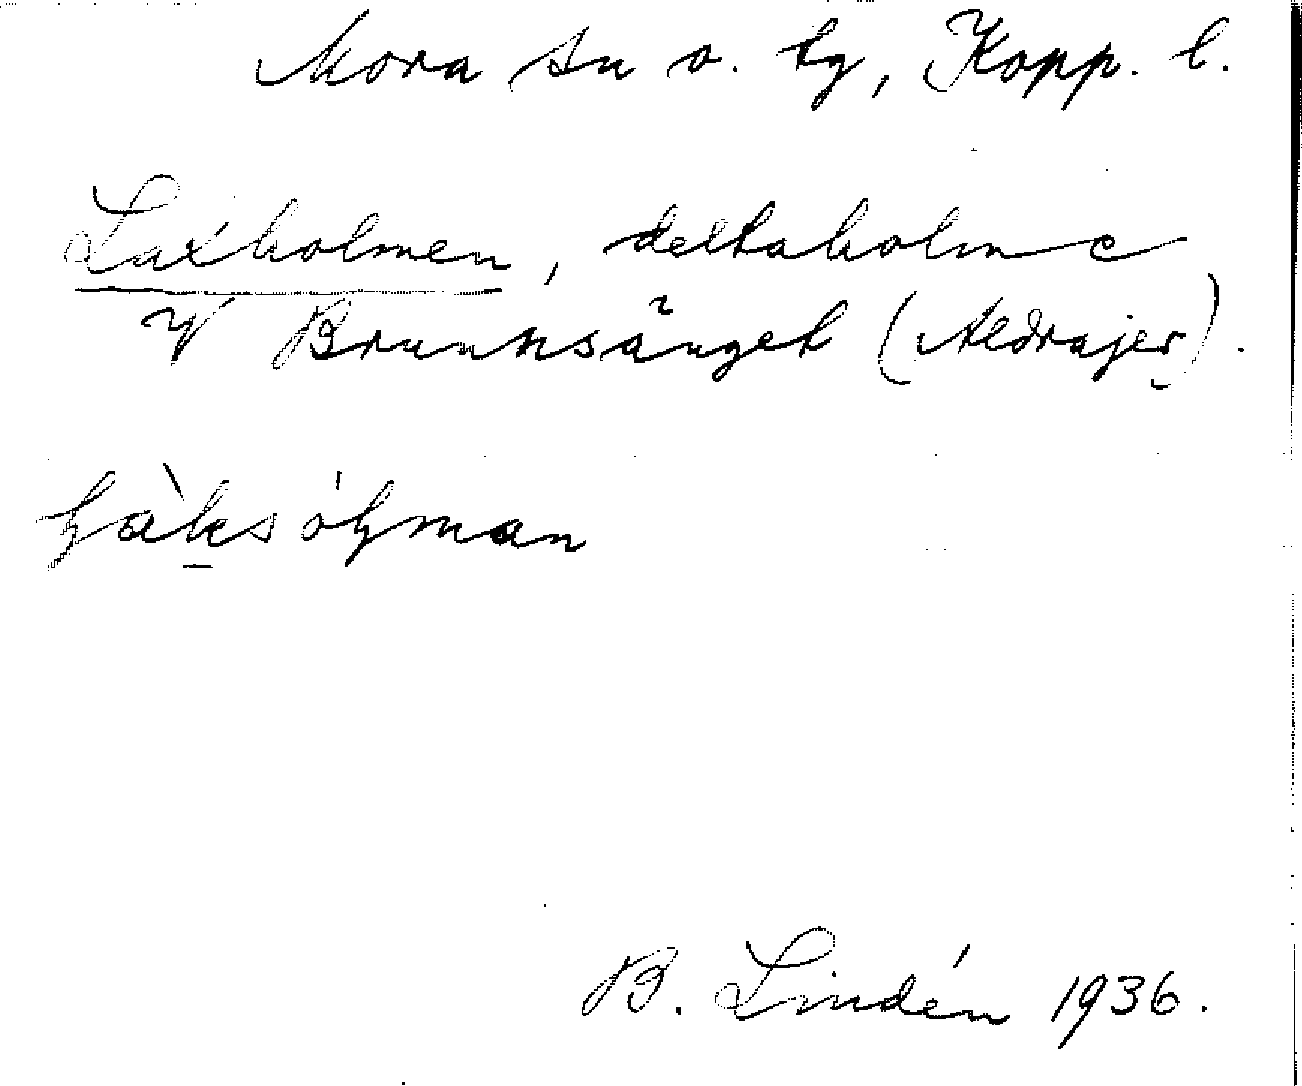 Mora sn o. tg, Kopp. l.
Laxholmen, deltaholme
V Brunnsänget (Aldrajer).
B. Lindén 1936.